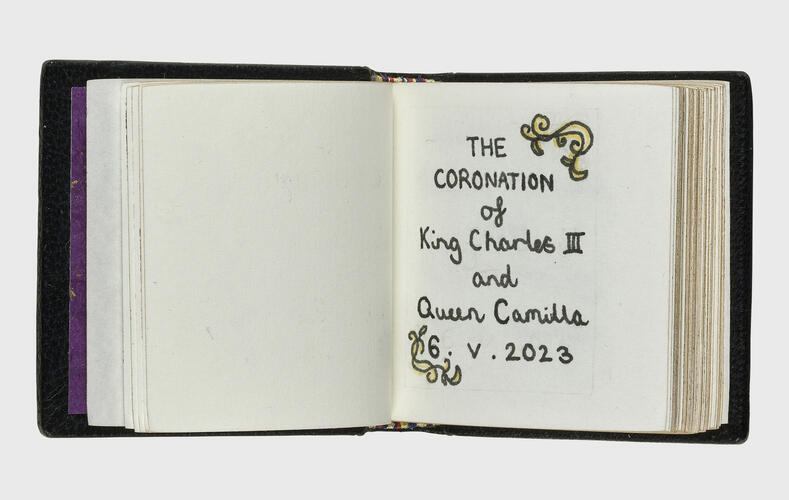 THE
CORONATION
of
King Charles III
and
Queen Camilla
6. V. 2023